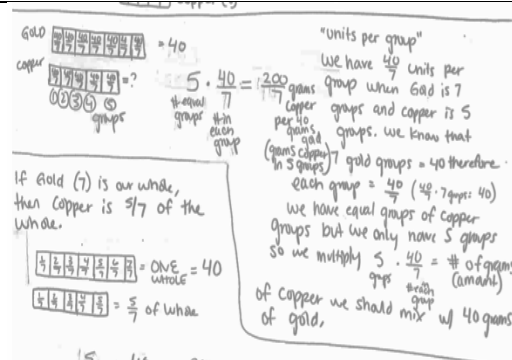 Gold 40/7 40/7 40/7 40/7 40/7 40/7 40/7 = 40
copper 40/7 40/7 40/7 40/7 40/7 = ?
① ② ③ ④ ⑤
groups
5 · 40/7 = 200/7 grams copper per 40 grams gold
# equal groups
# in each group
(grams copper in 5 groups)
If Gold (7) is our whole,
then Copper is 5/7 of the
whole.
1/7 2/7 3/7 4/7 5/7 6/7 7/7 = ONE WHOLE = 40
= 5/7 of whole
"units per group"
we have 40/7 units per
group when Gold is 7
groups and copper is 5
groups. We know that
7 gold groups = 40 therefore
each group = 40/7 (40/7 · 7 groups = 40)
we have equal groups of copper
groups but we only have 5 groups
so we multiply 5 · 40/7 = # of grams
groups
# each group
(amount)
of copper we should mix w/ 40 grams
of gold.